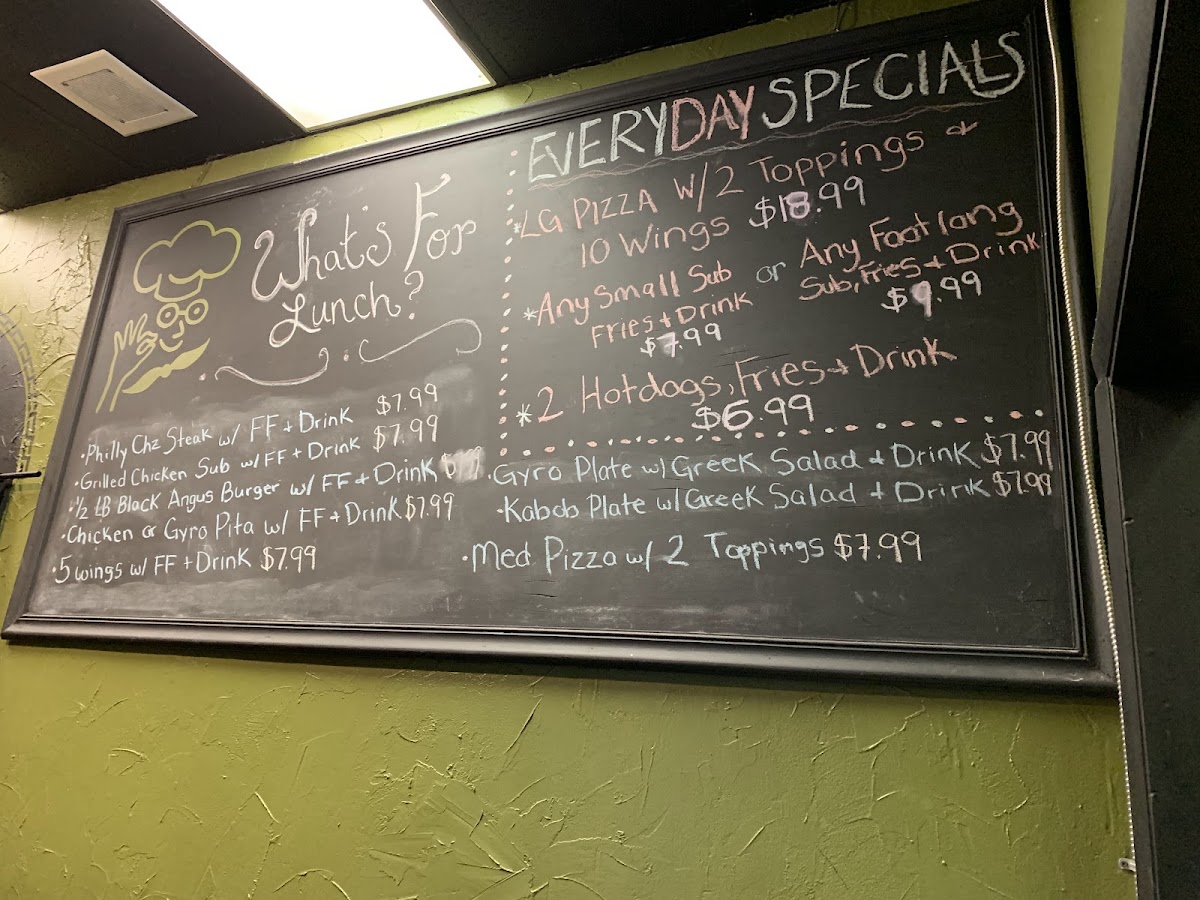 What's For
Lunch?
·Philly Chz Steak w/ FF + Drink $7.99
·Grilled Chicken Sub w/ FF + Drink $7.99
·1/2 LB Black Angus Burger w/ FF + Drink
·Chicken or Gyro Pita w/ FF + Drink $7.99
·5 wings w/ FF + Drink $7.99
EVERYDAY SPECIALS
*LG PIZZA W/2 Toppings &
10 Wings $18.99
*Any Small Sub
Fries + Drink
$7.99
or
Any Footlong
Sub, Fries + Drink
$9.99
*2 Hotdogs, Fries + Drink
$6.99
·Gyro Plate w/ Greek Salad & Drink $7.99
·Kabob Plate w/ Greek Salad + Drink $7.99
·Med Pizza w/ 2 Toppings $7.99